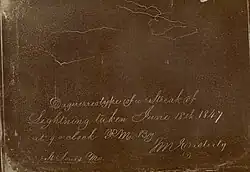 Daguerreotype of a Streak of
Lightning taken June 18th 1847
at 9 oclock P.M. By
T M Easterly
St Louis Mo.